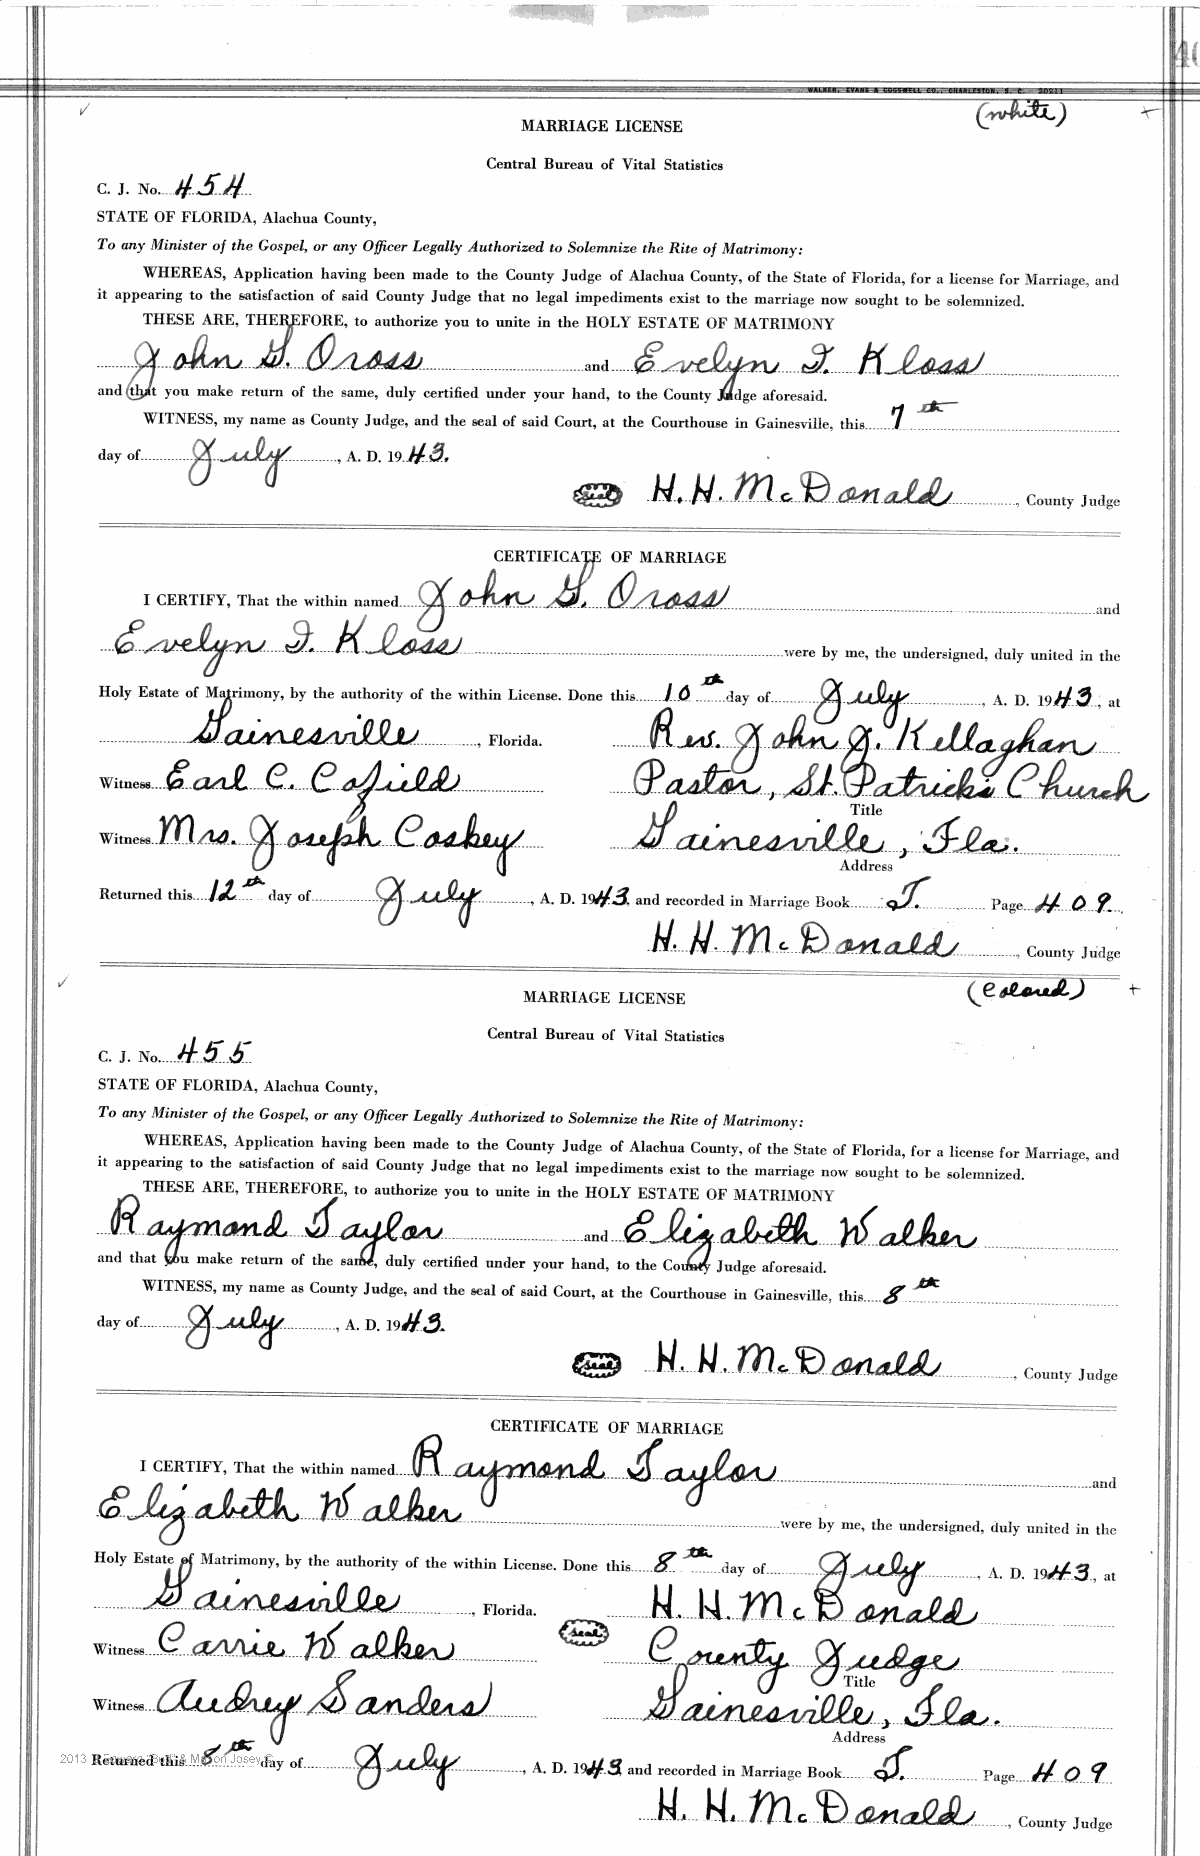 WALKER, EVANS & COGSWELL CO., CHARLESTON, S. C. 20211
(white)
MARRIAGE LICENSE
Central Bureau of Vital Statistics
C. J. No. 454
STATE OF FLORIDA, Alachua County,
To any Minister of the Gospel, or any Officer Legally Authorized to Solemnize the Rite of Matrimony:
WHEREAS, Application having been made to the County Judge of Alachua County, of the State of Florida, for a license for Marriage, and
it appearing to the satisfaction of said County Judge that no legal impediments exist to the marriage now sought to be solemnized.
THESE ARE, THEREFORE, to authorize you to unite in the HOLY ESTATE OF MATRIMONY
John G. Oross and Evelyn I. Kloss
and that you make return of the same, duly certified under your hand, to the County Judge aforesaid.
WITNESS, my name as County Judge, and the seal of said Court, at the Courthouse in Gainesville, this 7th
day of July, A. D. 1943.
seal H. H. McDonald, County Judge
CERTIFICATE OF MARRIAGE
I CERTIFY, That the within named John G. Oross and
Evelyn I. Kloss were by me, the undersigned, duly united in the
Holy Estate of Matrimony, by the authority of the within License. Done this 10th day of July, A. D. 1943, at
Gainesville, Florida. Rev. John J. Kellaghan
Witness Earl C. Cofield Pastor, St. Patricks Church
Title
Witness Mrs. Joseph Coskey Gainesville, Fla.
Address
Returned this 12th day of July, A. D. 1943, and recorded in Marriage Book T. Page 409.
H. H. McDonald, County Judge
(Colored)
MARRIAGE LICENSE
Central Bureau of Vital Statistics
C. J. No. 455
STATE OF FLORIDA, Alachua County,
To any Minister of the Gospel, or any Officer Legally Authorized to Solemnize the Rite of Matrimony:
WHEREAS, Application having been made to the County Judge of Alachua County, of the State of Florida, for a license for Marriage, and
it appearing to the satisfaction of said County Judge that no legal impediments exist to the marriage now sought to be solemnized.
THESE ARE, THEREFORE, to authorize you to unite in the HOLY ESTATE OF MATRIMONY
Raymond Taylor and Elizabeth Walker
and that you make return of the same, duly certified under your hand, to the County Judge aforesaid.
WITNESS, my name as County Judge, and the seal of said Court, at the Courthouse in Gainesville, this 8th
day of July, A. D. 1943.
seal H. H. McDonald, County Judge
CERTIFICATE OF MARRIAGE
I CERTIFY, That the within named Raymond Taylor and
Elizabeth Walker were by me, the undersigned, duly united in the
Holy Estate of Matrimony, by the authority of the within License. Done this 8th day of July, A. D. 1943, at
Gainesville, Florida. H. H. McDonald
seal
Witness Carrie Walker County Judge
Title
Witness Audrey Sanders Gainesville, Fla.
Address
Returned this 8th day of July, A. D. 1943, and recorded in Marriage Book T. Page 409
H. H. McDonald, County Judge